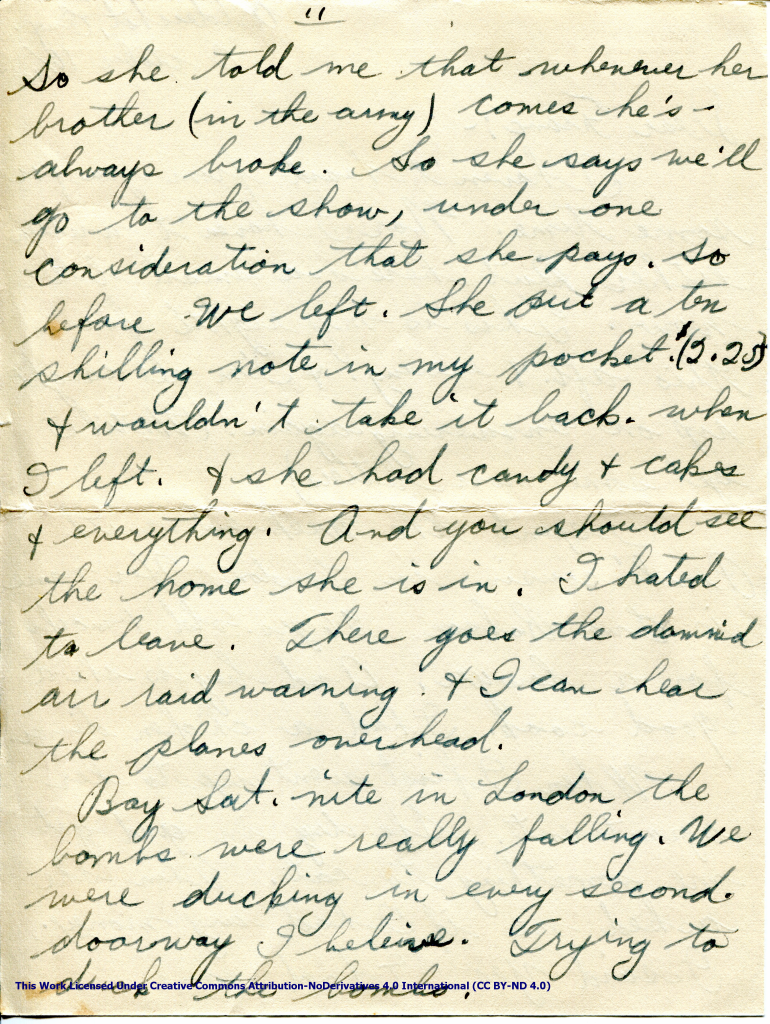 11
So she told me that whenever her
brother (in the army) comes he's -
always broke. So she says we'll
go to the show, under one
consideration that she pays. So
before We left. She put a ten
shilling note in my pocket. $(2.25)
& wouldn't take it back. when
I left. & she had candy & cakes
& everything. And you should see
the home she is in. I hated
to leave. There goes the damnid
air raid warning. & I can hear
the planes overhead.
Boy Sat. nite in London the
bombs were really falling. We
were ducking in every second
doorway I beleive. Trying to
duck the bombs.
This Work Licensed Under Creative Commons Attribution-NoDerivatives 4.0 International (CC BY-ND 4.0)